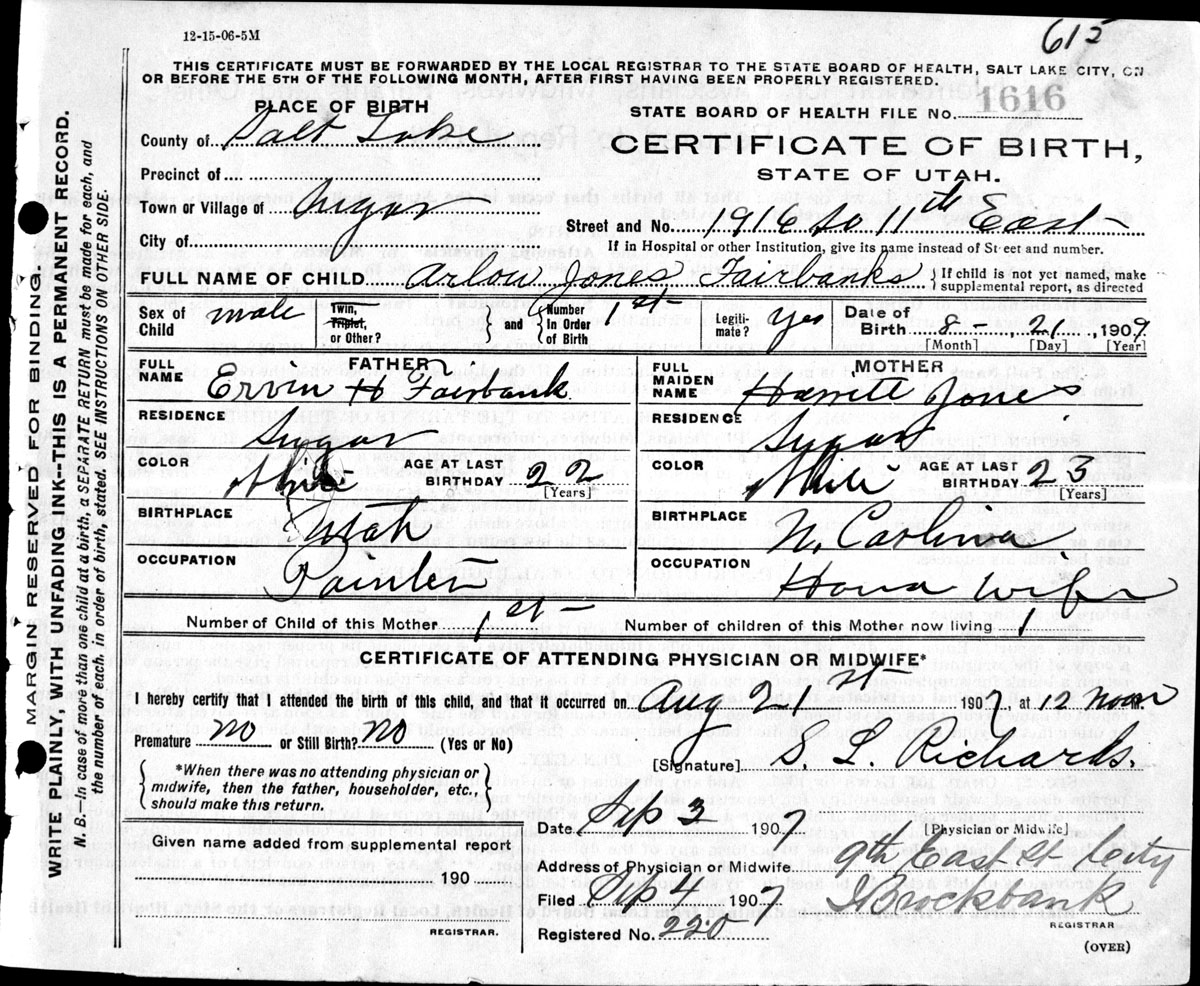 12-15-06-5M
615
THIS CERTIFICATE MUST BE FORWARDED BY THE LOCAL REGISTRAR TO THE STATE BOARD OF HEALTH, SALT LAKE CITY, ON
OR BEFORE THE 5TH OF THE FOLLOWING MONTH, AFTER FIRST HAVING BEEN PROPERLY REGISTERED.
PLACE OF BIRTH
STATE BOARD OF HEALTH FILE No. 1616
County of Salt Lake
CERTIFICATE OF BIRTH,
STATE OF UTAH.
Precinct of
Town or Village of Sugar
Street and No. 1916 So 11th East
City of
If in Hospital or other Institution, give its name instead of Street and number.
FULL NAME OF CHILD Arlow Jones Fairbanks
If child is not yet named, make
supplemental report, as directed
Sex of Child male
Twin, Triplet, or Other?
and Number In Order of Birth 1st
Legiti-mate? Yes
Date of Birth 8 - 21, 1907
[Month] [Day] [Year]
FATHER
FULL NAME Ervin H Fairbank
MOTHER
FULL MAIDEN NAME Jones
RESIDENCE Sugar
RESIDENCE Sugar
COLOR White AGE AT LAST BIRTHDAY 22 [Years]
COLOR White AGE AT LAST BIRTHDAY 23 [Years]
BIRTHPLACE Utah
BIRTHPLACE N. Carolina
OCCUPATION Painter
OCCUPATION House Wife
Number of Child of this Mother 1st
Number of children of this Mother now living 1
CERTIFICATE OF ATTENDING PHYSICIAN OR MIDWIFE*
I hereby certify that I attended the birth of this child, and that it occurred on Aug 21st 1907, at 12 Noon
Premature no or Still Birth? no (Yes or No)
[Signature] S. L. Richards.
*When there was no attending physician or
midwife, then the father, householder, etc.,
should make this return.
Date Sep 3 1907
[Physician or Midwife]
Given name added from supplemental report
Address of Physician or Midwife 9th East St City
190
Filed Sep 4 1907
Brockbank
REGISTRAR
REGISTRAR.
Registered No. 220
(OVER)
MARGIN RESERVED FOR BINDING.
WRITE PLAINLY, WITH UNFADING INK--THIS IS A PERMANENT RECORD.
N. B.—In case of more than one child at a birth, a SEPARATE RETURN must be made for each, and
the number of each, in order of birth, stated. SEE INSTRUCTIONS ON OTHER SIDE.